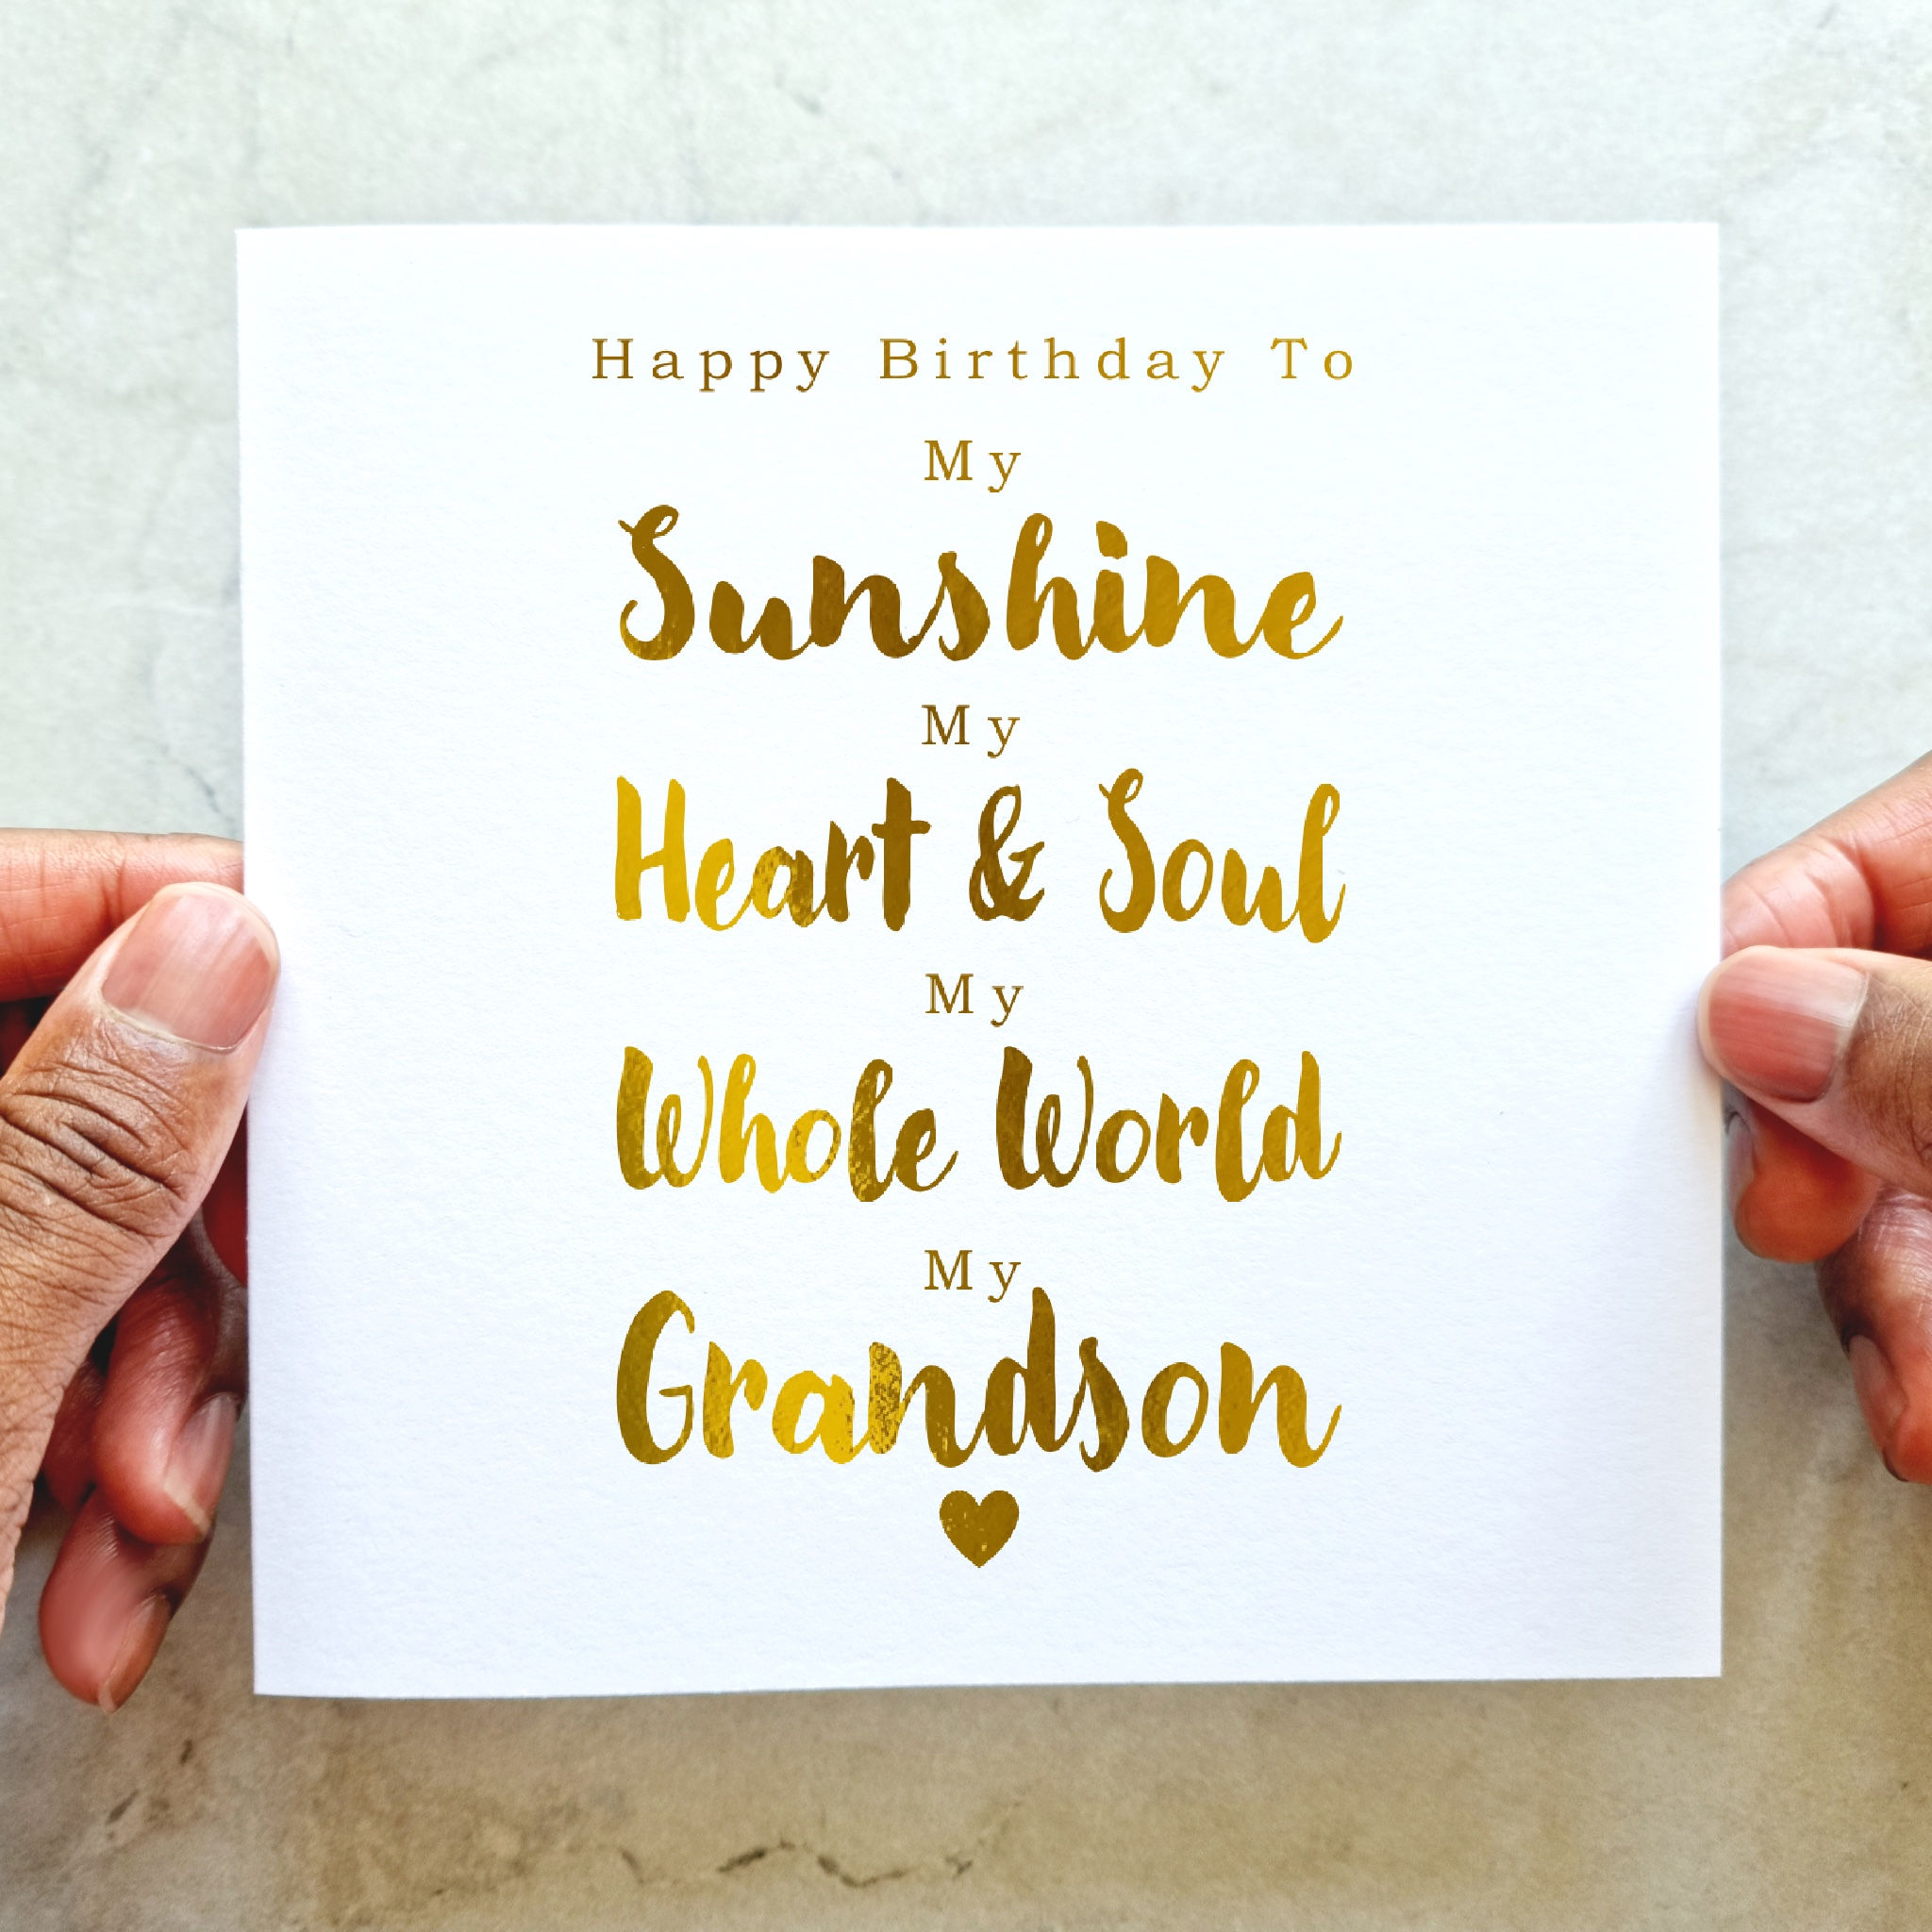 Happy Birthday To
My
Sunshine
My
Heart & Soul
My
Whole World
My
Grandson